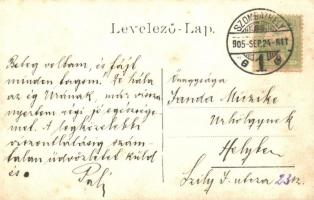 Levelező-Lap.
SZOMBATHELY
905 SEP. 24
Beteg voltam, és fájt
minden tagom. De hála
az ég Urának, már vissza
nyertem régi jó egészsége
met. A legközelebbi
viszontlátásig szám-
talan üdvözletet küld
és
Pali
Őnagysága
Janda Miczike
Urhölgynek
Helyben
Szily J. utcza 23 sz.